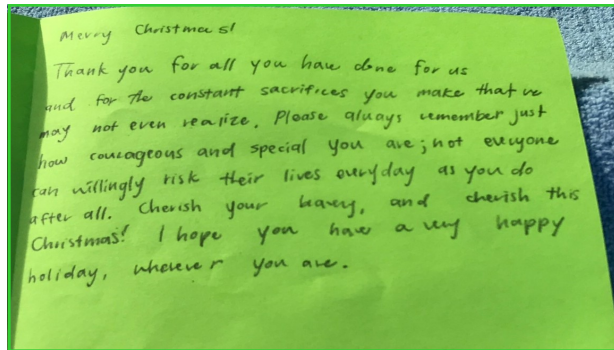 Merry Christmas!
Thank you for all you have done for us
and for the constant sacrifices you make that we
may not even realize. Please always remember just
how courageous and special you are; not everyone
can willingly risk their lives everyday as you do
after all. Cherish your bravery, and cherish this
Christmas! I hope you have a very happy
holiday, wherever you are.